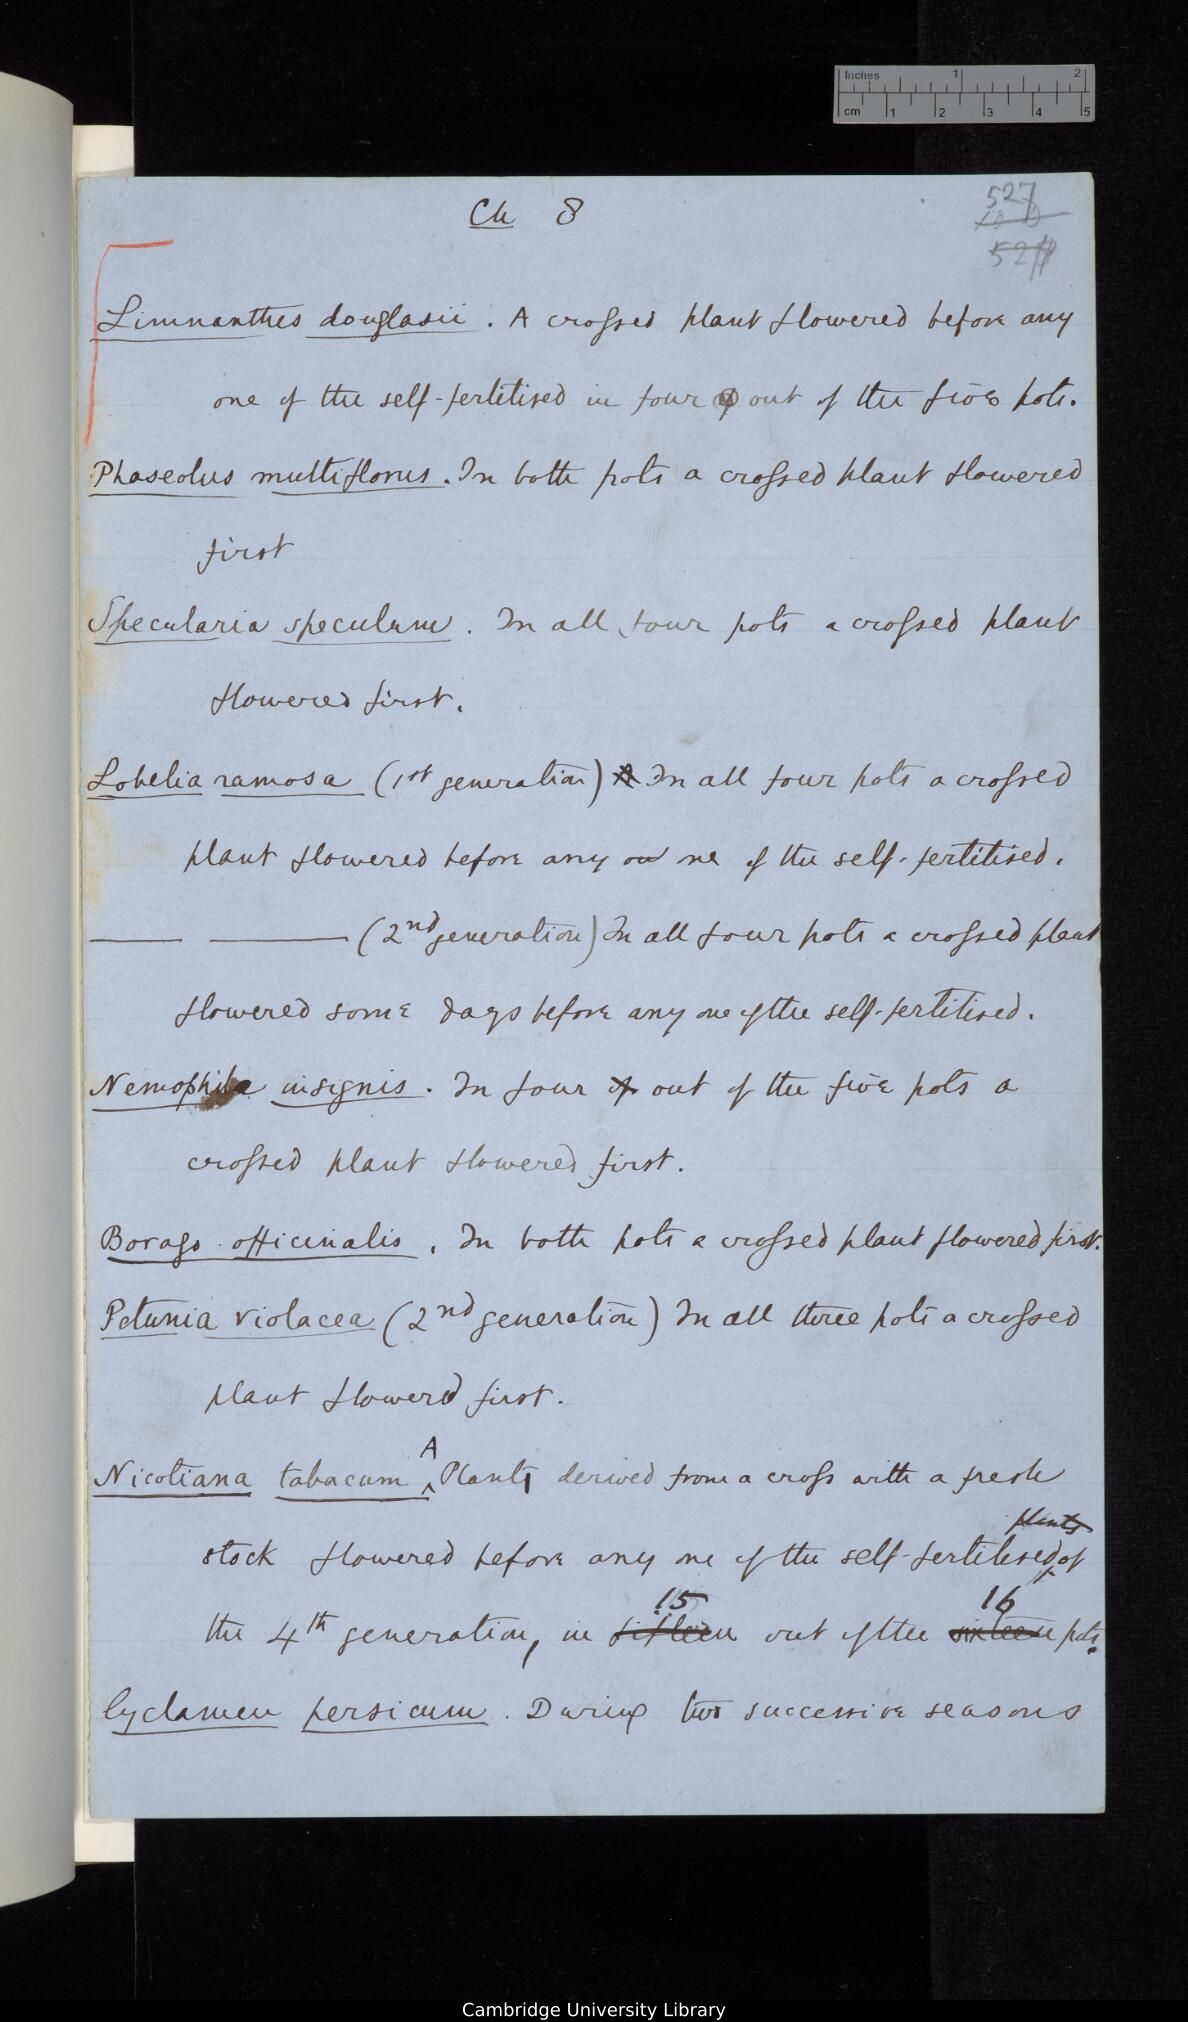 Inches 1 2
cm 1 2 3 4 5
Ch 8
527
528
Limnanthes douglasii. A crossed plant flowered before any
one of the self-fertilised in four out of the five pots.
Phaseolus multiflorus. In both pots a crossed plant flowered
first
Specularia speculum. In all four pots a crossed plant
flowered first.
Lobelia ramosa (1st generation) A In all four pots a crossed
plant flowered before any on ne of the self-fertilised.
(2nd generation) In all four pots a crossed plant
flowered some days before any one of the self-fertilised.
Nemophila insignis. In four of out of the five pots a
crossed plant flowered first.
Borago officinalis. In both pots a crossed plant flowered first.
Petunia violacea (2nd generation) In all three pots a crossed
plant flowered first.
A
Nicotiana tabacum Plants derived from a cross with a fresh
plants
stock flowered before any one of the self-fertilised of
15 16
the 4th generation, in fifteen out of the sixteen pots.
Cyclamen persicum. During two successive seasons
Cambridge University Library